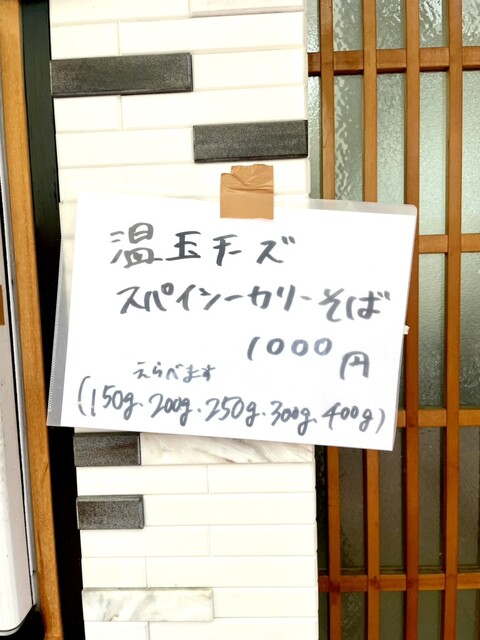 温玉チーズ
スパイシーカリーそば
1000円
えらべます
(150g.200g.250g.300g.400g)